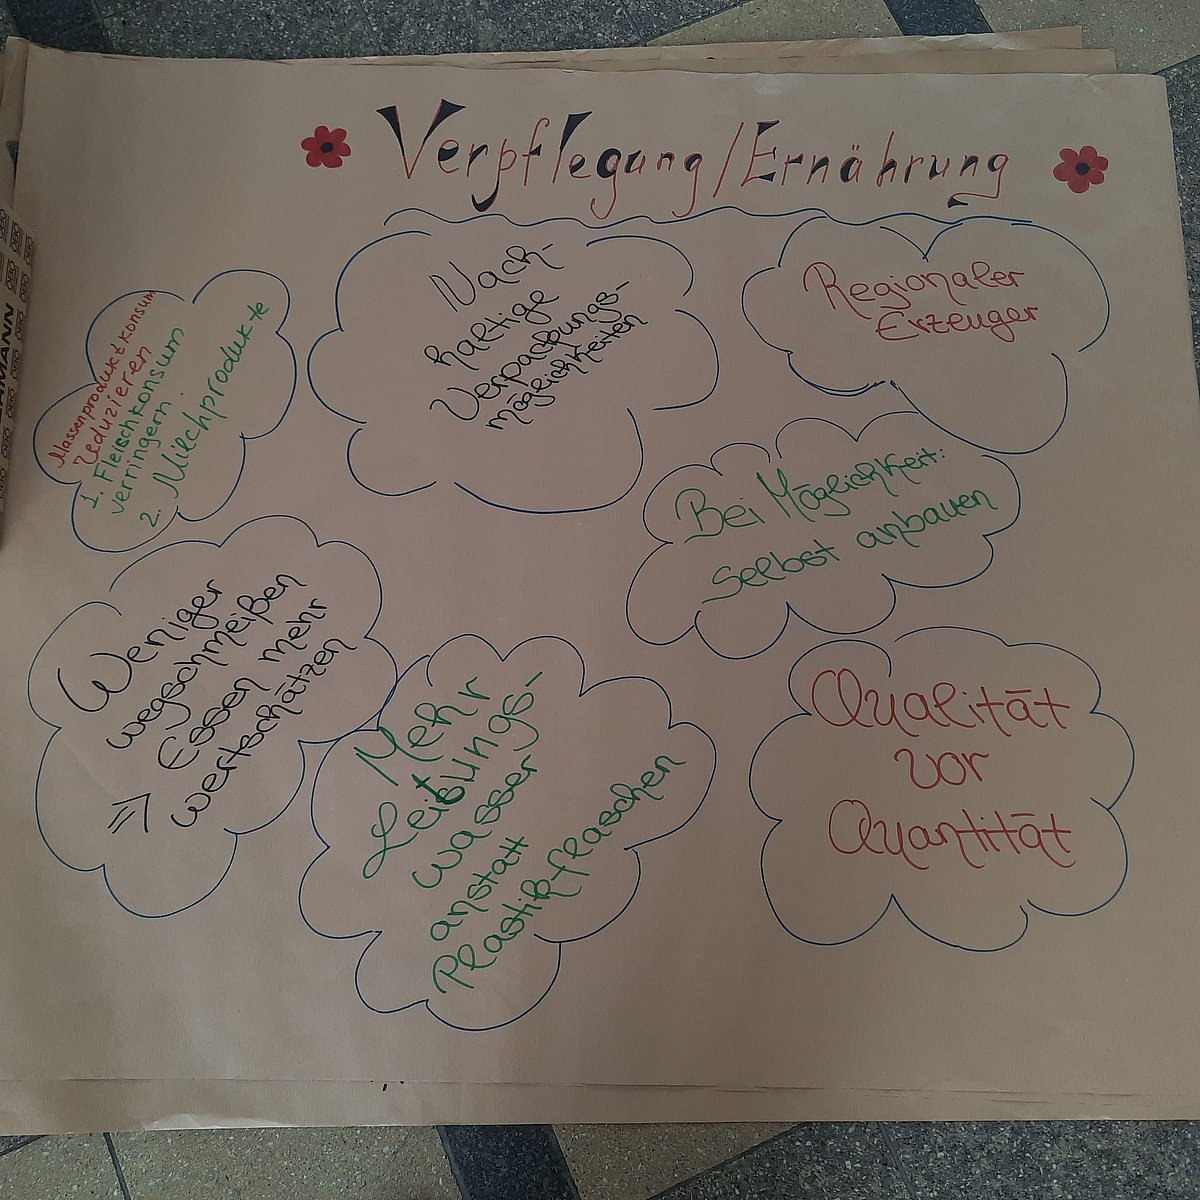 Verpflegung/Ernährung
Massenprodukt konsum
reduzieren
1. Fleischkonsum
verringern
2. Milchprodukte
Nach-
haltige
Verpackungs-
möglichkeiten
Regionaler
Erzeuger
Bei Möglichkeit:
selbst anbauen
Weniger
wegschmeißen
Essen mehr
⇒ wertschätzen
Mehr
Leitungs-
wasser
anstatt
Plastikflaschen
Qualität
vor
Quantität